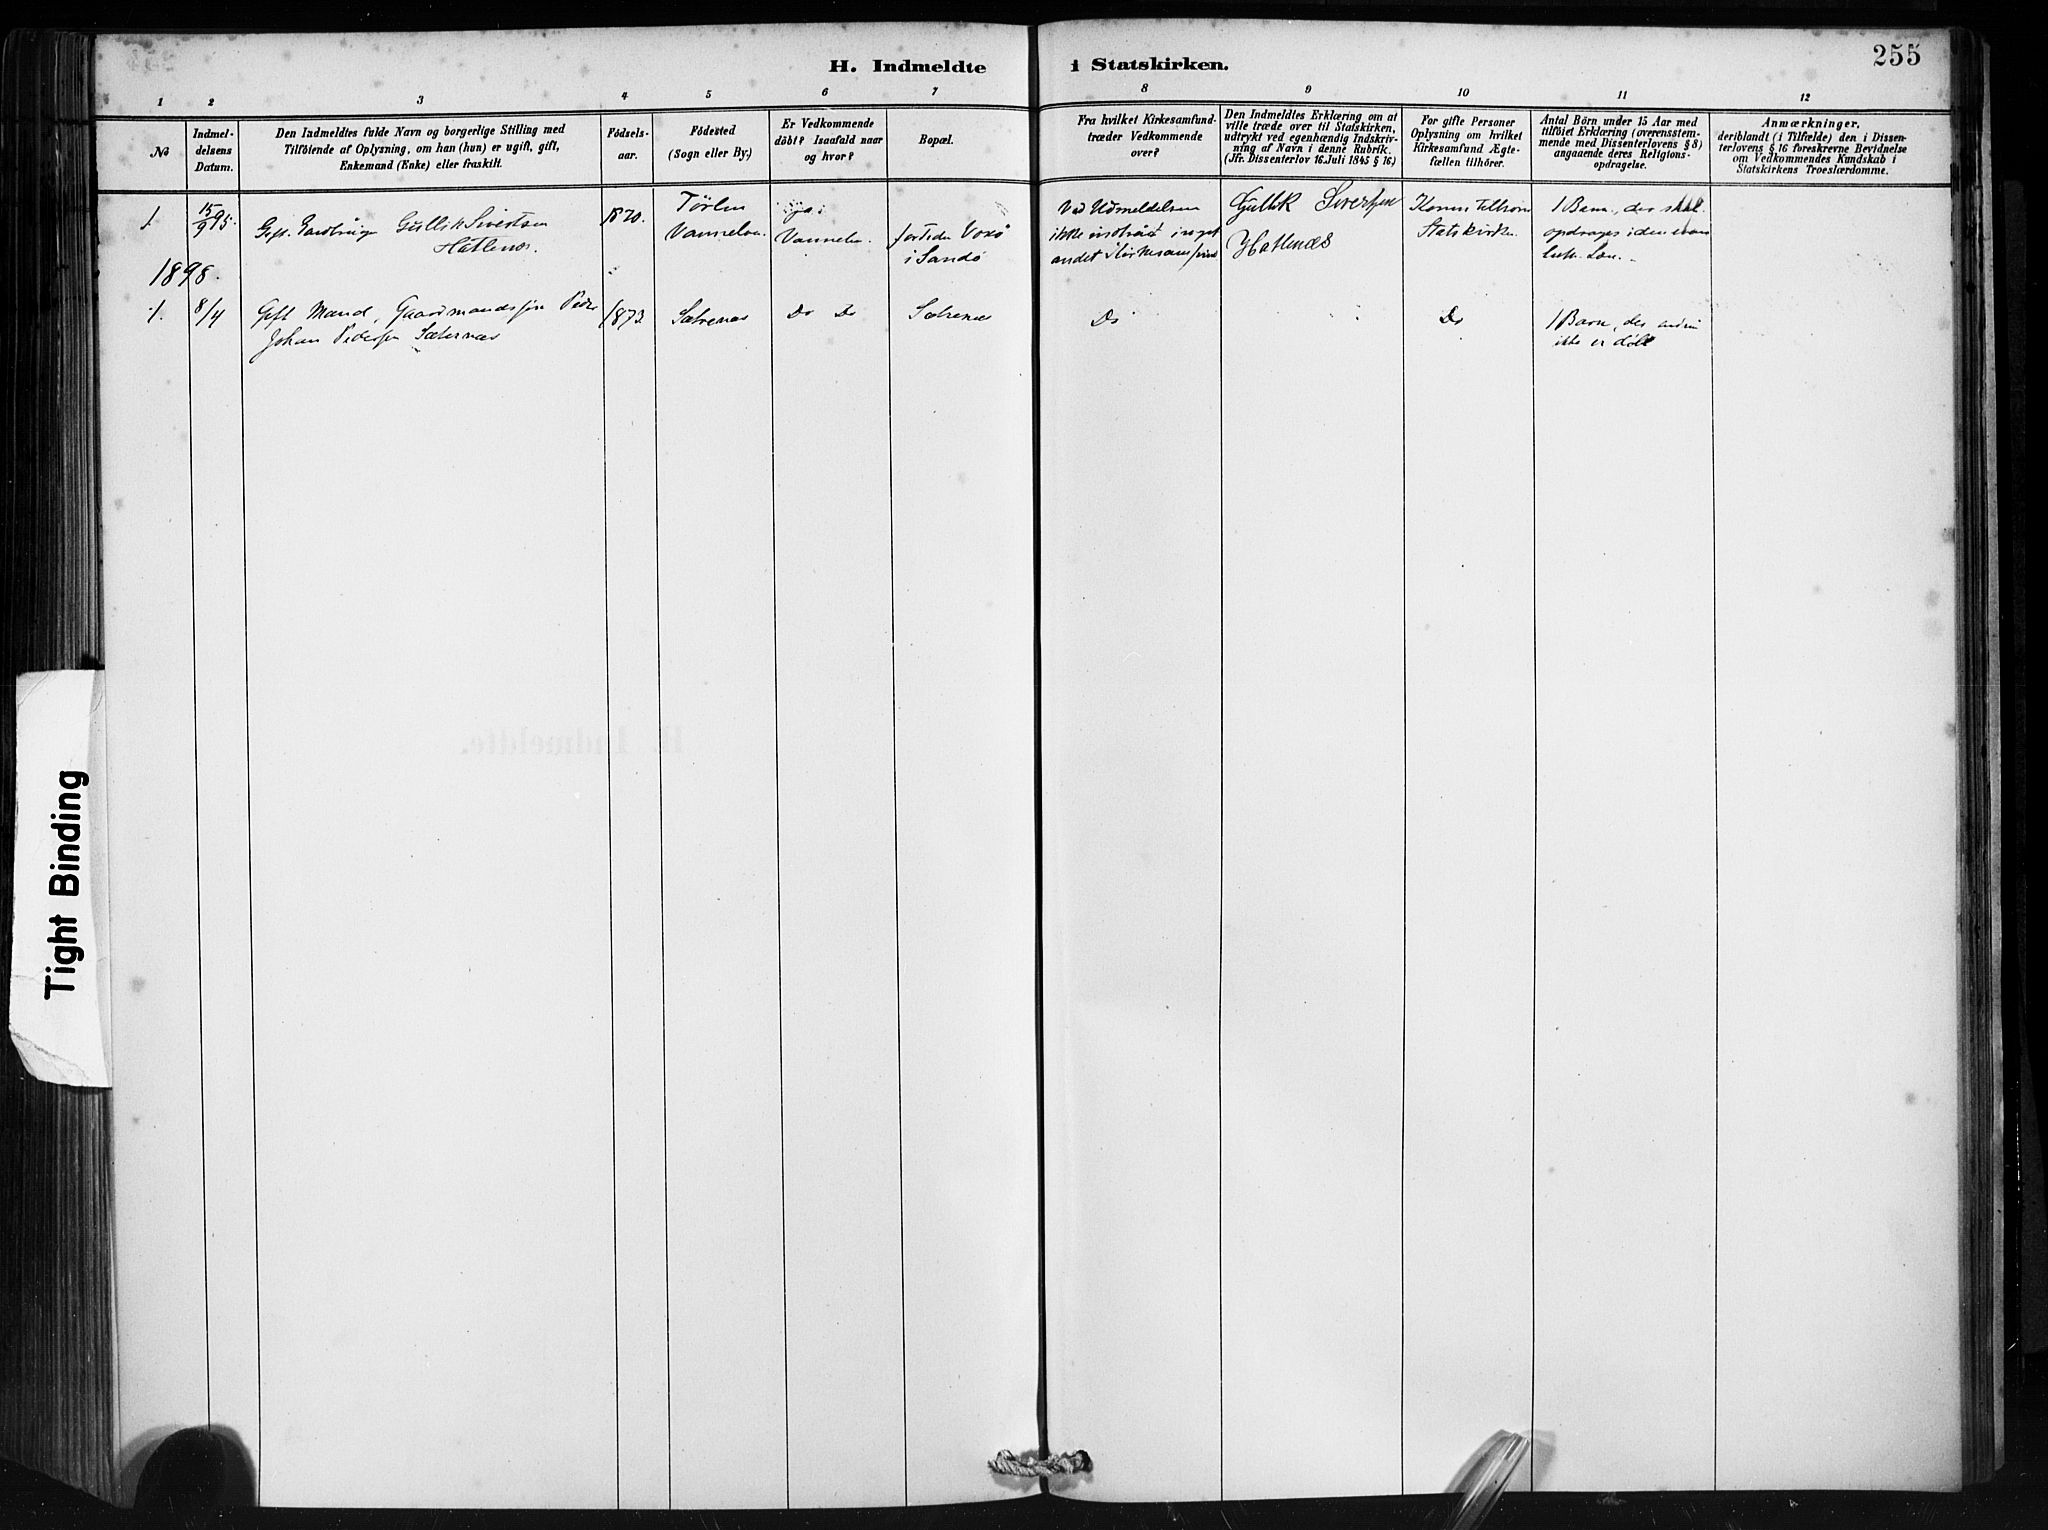 H. Indmeldte i Statskirken.
255
1 2 3 4 5 6 7 8 9 10 11 12
No
Indmel-
delsens
Datum.
Den Indmeldtes fulde Navn og borgerlige Stilling med
Tilföiende af Oplysning, om han (hun) er ugift, gift,
Enkemand (Enke) eller fraskilt.
Födsels-
aar.
Födested
(Sogn eller By.)
Er Vedkommende
döbt? Isaafald naar
og hvor?
Bopæl.
Fra hvilket Kirkesamfund-
træder Vedkommende
over?
Den Indmeldtes Erklæring om at
ville træde over til Statskirken,
udtrykt ved egenhændig Indskriv-
ning af Navn i denne Rubrik.
(Jfr. Dissenterlov 16. Juli 1845 § 16.)
For gifte Personer
Oplysning om hvilket
Kirkesamfund Ægte-
fællen tilhörer.
Antal Börn under 15 Aar med
tilföiet Erklæring (overensstem-
mende med Dissenterlovens § 8)
angaaende deres Religions-
opdragelse.
Anmærkninger,
deriblandt (i Tilfælde) den i Dissen-
terlovens § 16 foreskrevne Bevidnelse
om Vedkommendes Kundskab i
Statskirkens Troeslærdomme.
1.
15/9 95.
Gift. Gullik Sivertsen
Hatlenes.
1870.
Vannelven.
ja i
Vannelv.
i Sandö
Ved Udmeldelsen
ikke indtraadt i noget
andet Kirkesamfund
Gullik Sivertsen
Hatlenæs
Konen tilhører
Statskirken.
1 Barn, der skal
opdrages i den evan
luth. Lære.
1898.
1.
8/4
Gift Mand, Gaardmandssøn Peder
Johan Pedersen Sæternæs
1873.
Sætrenæs
Do Do
Sætrenæs
Do
Do
1 Barn, der endnu
ikke er døbt
H. Indmeldte.
Tight Binding